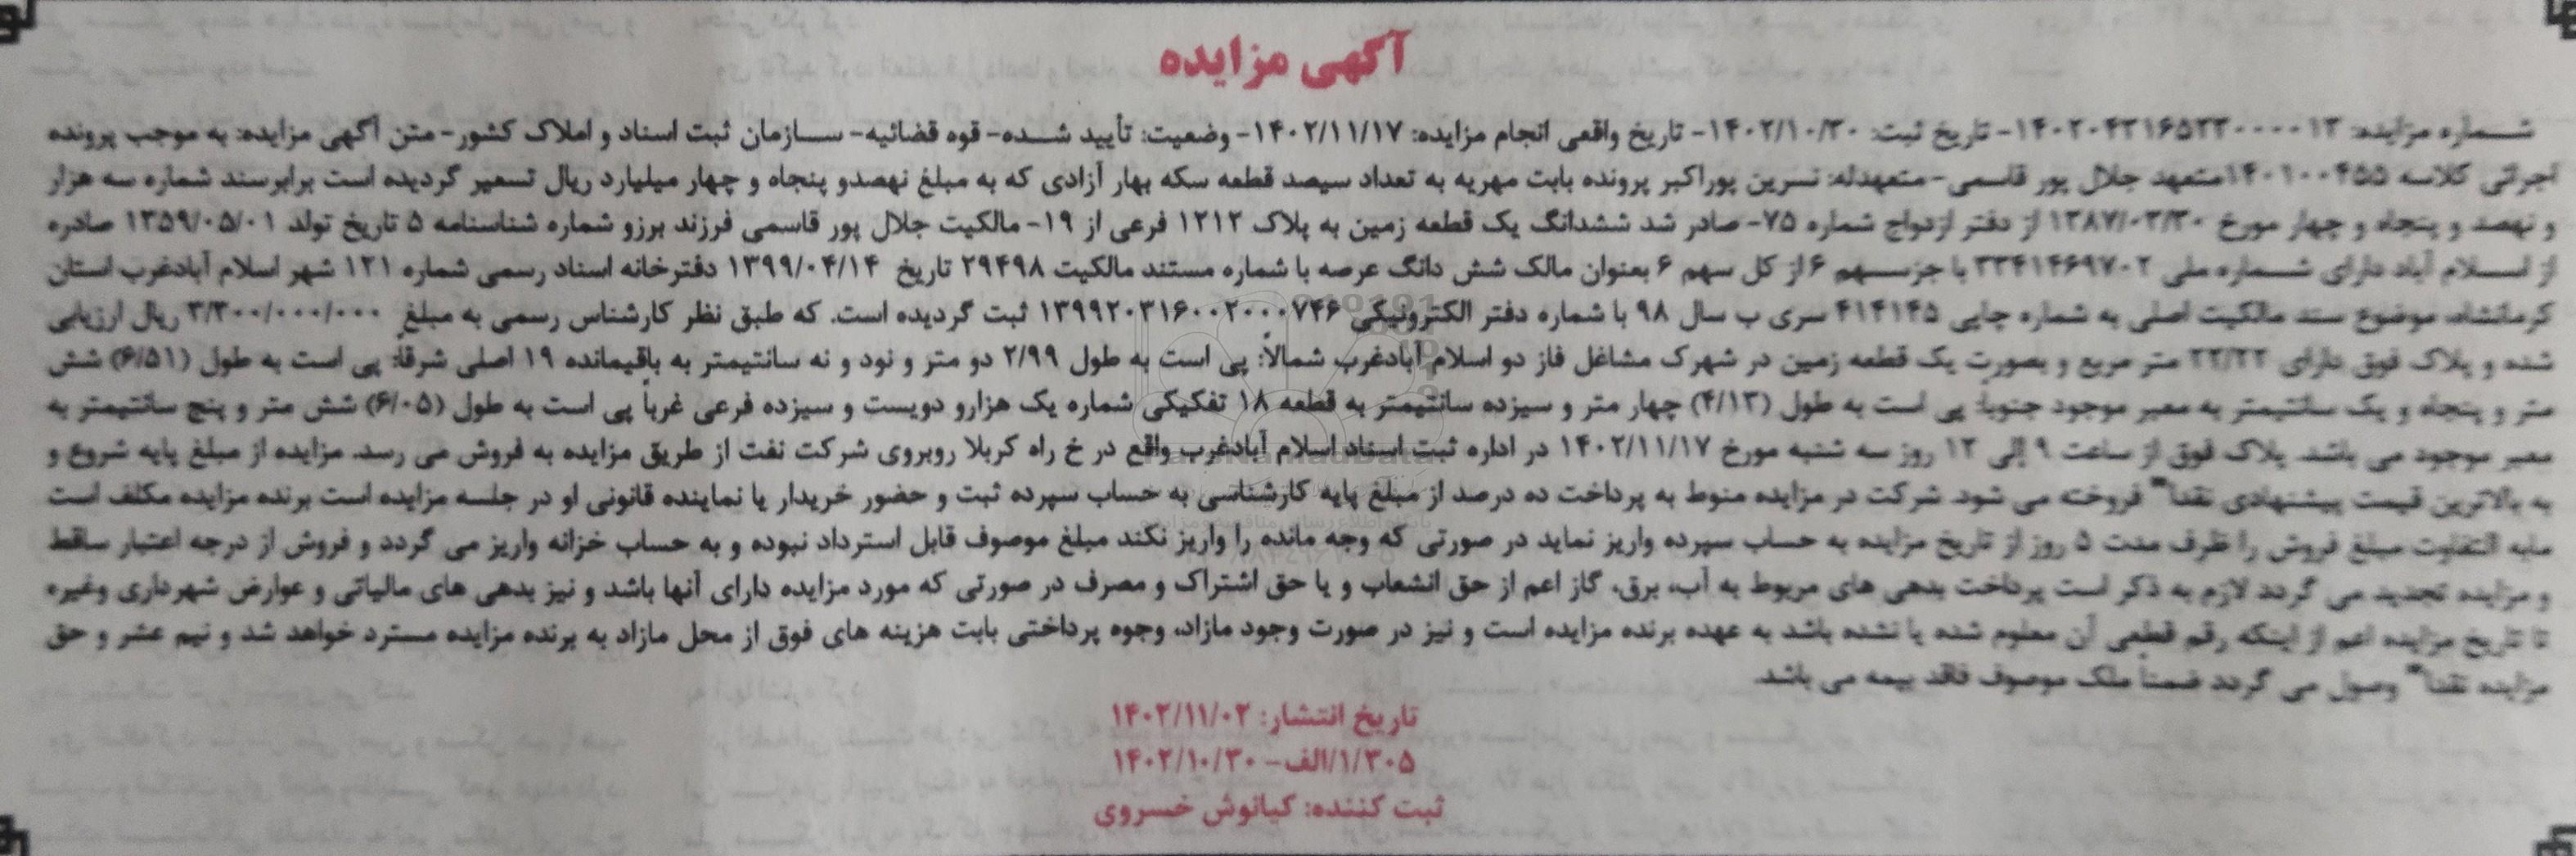 آگهی مزایده
شماره مزایده: ۱۴۰۲۰۴۳۱۶۵۲۲۰۰۰۰۱۳- تاریخ ثبت: ۱۴۰۲/۱۰/۳۰- تاریخ واقعی انجام مزایده: ۱۴۰۲/۱۱/۱۷- وضعیت: تأیید شده- قوه قضائیه- سازمان ثبت اسناد و املاک کشور- متن آگهی مزایده: به موجب پرونده
اجرائی کلاسه ۱۴۰۱۰۰۴۵۵ متعهد جلال پور قاسمی- متعهدله: نسرین پوراکبر پرونده بابت مهریه به تعداد سیصد قطعه سکه بهار آزادی که به مبلغ نهصدو پنجاه و چهار میلیارد ریال تسعیر گردیده است برابرسند شماره سه هزار
و نهصد و پنجاه و چهار مورخ ۱۳۸۷/۰۳/۳۰ از دفتر ازدواج شماره ۷۵- صادر شد ششدانگ یک قطعه زمین به پلاک ۱۲۱۲ فرعی از ۱۹- مالکیت جلال پور قاسمی فرزند برزو شماره شناسنامه ۵ تاریخ تولد ۱۳۵۹/۰۵/۰۱ صادره
از اسلام آباد دارای شماره ملی ۳۳۴۱۴۶۹۷۰۲ با جزسهم ۶ از کل سهم ۶ بعنوان مالک شش دانگ عرصه با شماره مستند مالکیت ۲۹۴۹۸ تاریخ ۱۳۹۹/۰۴/۱۴ دفترخانه اسناد رسمی شماره ۱۲۱ شهر اسلام آبادغرب استان
کرمانشاه، موضوع سند مالکیت اصلی به شماره چاپی ۴۱۴۱۴۵ سری ب سال ۹۸ با شماره دفتر الکترونیکی ۱۳۹۹۲۰۳۱۶۰۰۲۰۰۰۷۴۶ ثبت گردیده است. که طبق نظر کارشناس رسمی به مبلغ ۳/۳۰۰/۰۰۰/۰۰۰ ریال ارزیابی
شده و پلاک فوق دارای ۲۲/۲۲ متر مربع و بصورت یک قطعه زمین در شهرک مشاغل فاز دو اسلام آبادغرب شمالاً: پی است به طول ۲/۹۹ دو متر و نود و نه سانتیمتر به باقیمانده ۱۹ اصلی شرقاً: پی است به طول (۶/۵۱) شش
متر و پنجاه و یک سانتیمتر به معبر موجود جنوباً: پی است به طول (۴/۱۳) چهار متر و سیزده سانتیمتر به قطعه ۱۸ تفکیکی شماره یک هزارو دویست و سیزده فرعی غرباً پی است به طول (۶/۰۵) شش متر و پنج سانتیمتر به
معبر موجود می باشد. پلاک فوق از ساعت ۹ إلی ۱۲ روز سه شنبه مورخ ۱۴۰۲/۱۱/۱۷ در اداره ثبت اسناد اسلام آبادغرب واقع در خ راه کربلا روبروی شرکت نفت از طریق مزایده به فروش می رسد. مزایده از مبلغ پایه شروع و
به بالاترین قیمت پیشنهادی نقداً فروخته می شود. شرکت در مزایده منوط به پرداخت ده درصد از مبلغ پایه کارشناسی به حساب سپرده ثبت و حضور خریدار یا نماینده قانونی او در جلسه مزایده است برنده مزایده مکلف است
مابه التفاوت مبلغ فروش را ظرف مدت ۵ روز از تاریخ مزایده به حساب سپرده واریز نماید در صورتی که وجه مانده را واریز نکند مبلغ موصوف قابل استرداد نبوده و به حساب خزانه واریز می گردد و فروش از درجه اعتبار ساقط
و مزایده تجدید می گردد لازم به ذکر است پرداخت بدهی های مربوط به آب، برق، گاز اعم از حق انشعاب و یا حق اشتراک و مصرف در صورتی که مورد مزایده دارای آنها باشد و نیز بدهی های مالیاتی و عوارض شهرداری وغیره
تا تاریخ مزایده اعم از اینکه رقم قطعی آن معلوم شده یا نشده باشد به عهده برنده مزایده است و نیز در صورت وجود مازاد، وجوه پرداختی بابت هزینه های فوق از محل مازاد به برنده مزایده مسترد خواهد شد و نیم عشر و حق
مزایده نقداً وصول می گردد ضمناً ملک موصوف فاقد بیمه می باشد.
تاریخ انتشار: ۱۴۰۲/۱۱/۰۲
۱/۳۰۵/الف- ۱۴۰۲/۱۰/۳۰
ثبت کننده: کیانوش خسروی